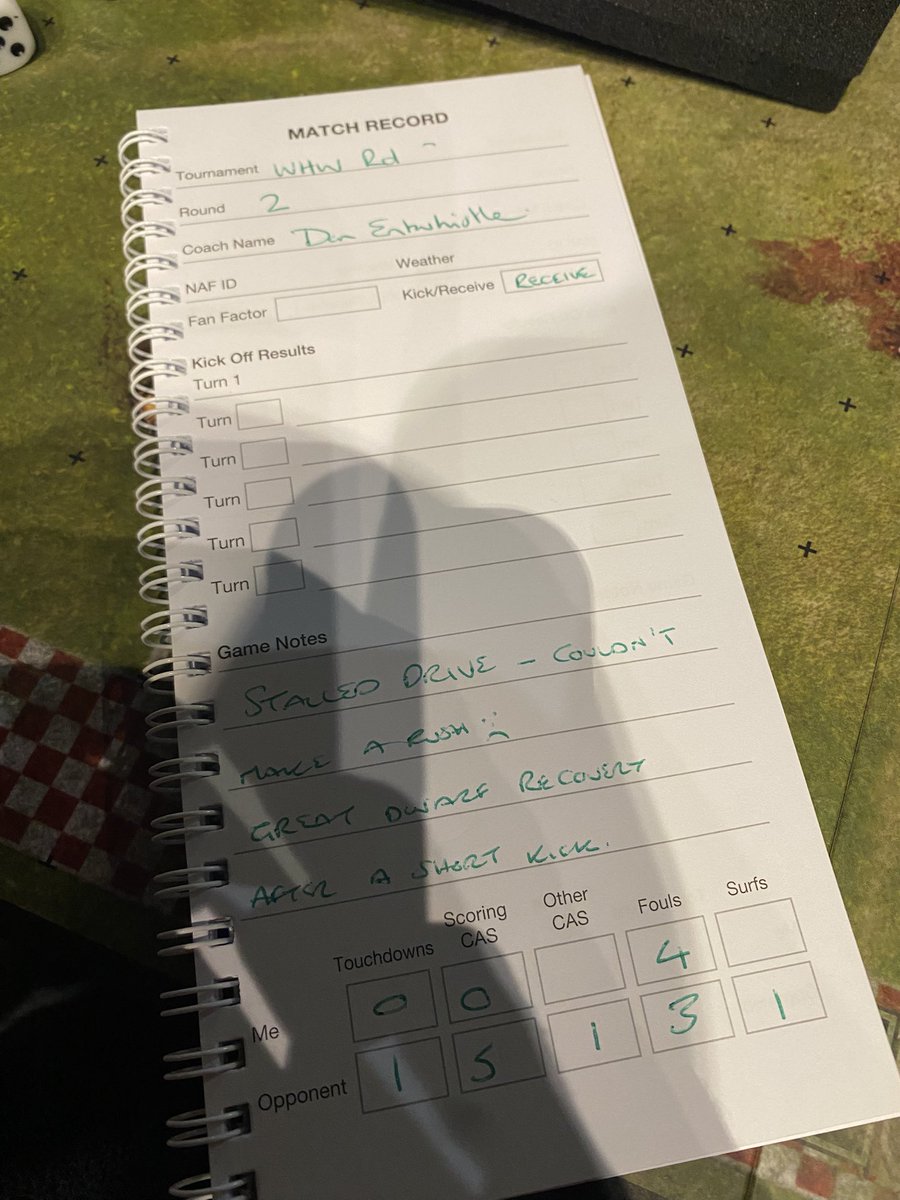 MATCH RECORD
Tournament WHW Rd
Round 2
Coach Name Dan Entwhistle
NAF ID Weather
Fan Factor Kick/Receive RECEIVE
Kick Off Results
Turn 1
Turn
Turn
Turn
Turn
Turn
Game Notes
STALLED DRIVE - COULDN'T
MAKE A RUSH :(
GREAT DWARF RECOVERY
AFTER A SHORT KICK.
Touchdowns Scoring CAS Other CAS Fouls Surfs
Me 0 0 4
Opponent 1 5 1 3 1